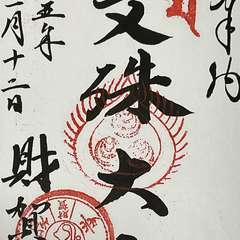 奉納
文殊大
五年
月十二日
財賀